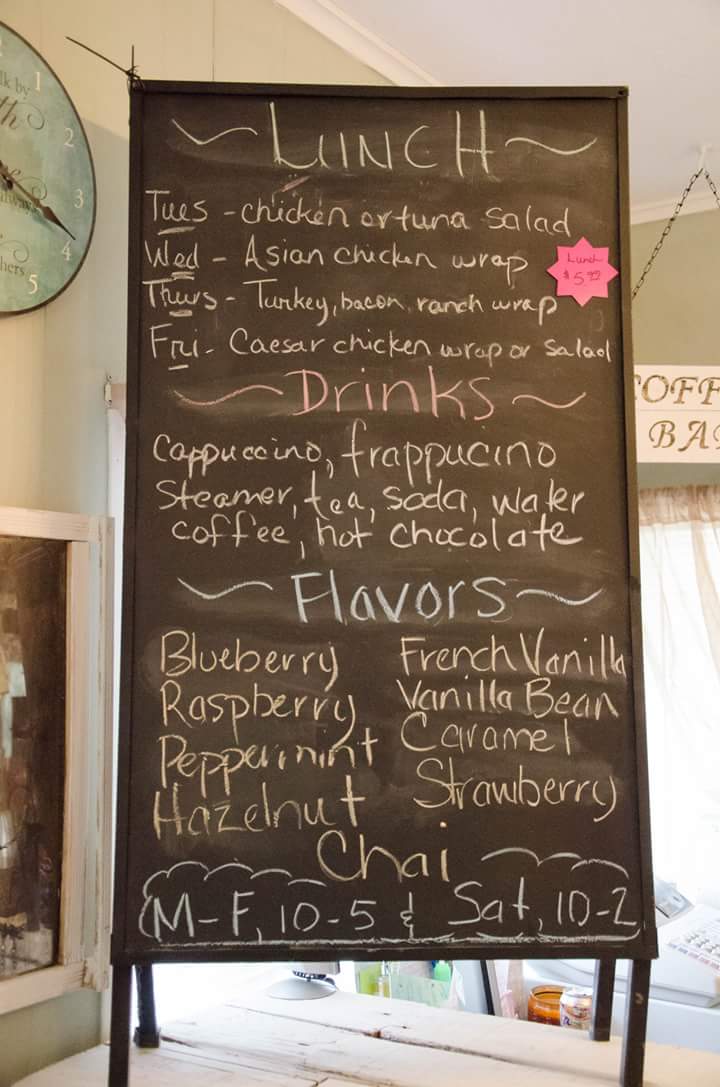 1
2
3
4
5
LUNCH
Tues - chicken or tuna salad
Wed - Asian chicken wrap
Thurs - Turkey, bacon, ranch wrap
Fri - Caesar chicken wrap or salad
Lunch
$5.99
Drinks
Cappuccino, frappucino
Steamer, tea, soda, water
coffee, hot chocolate
Flavors
Blueberry
Raspberry
Peppermint
Hazelnut
French Vanilla
Vanilla Bean
Caramel
Strawberry
Chai
M-F, 10-5 & Sat, 10-2